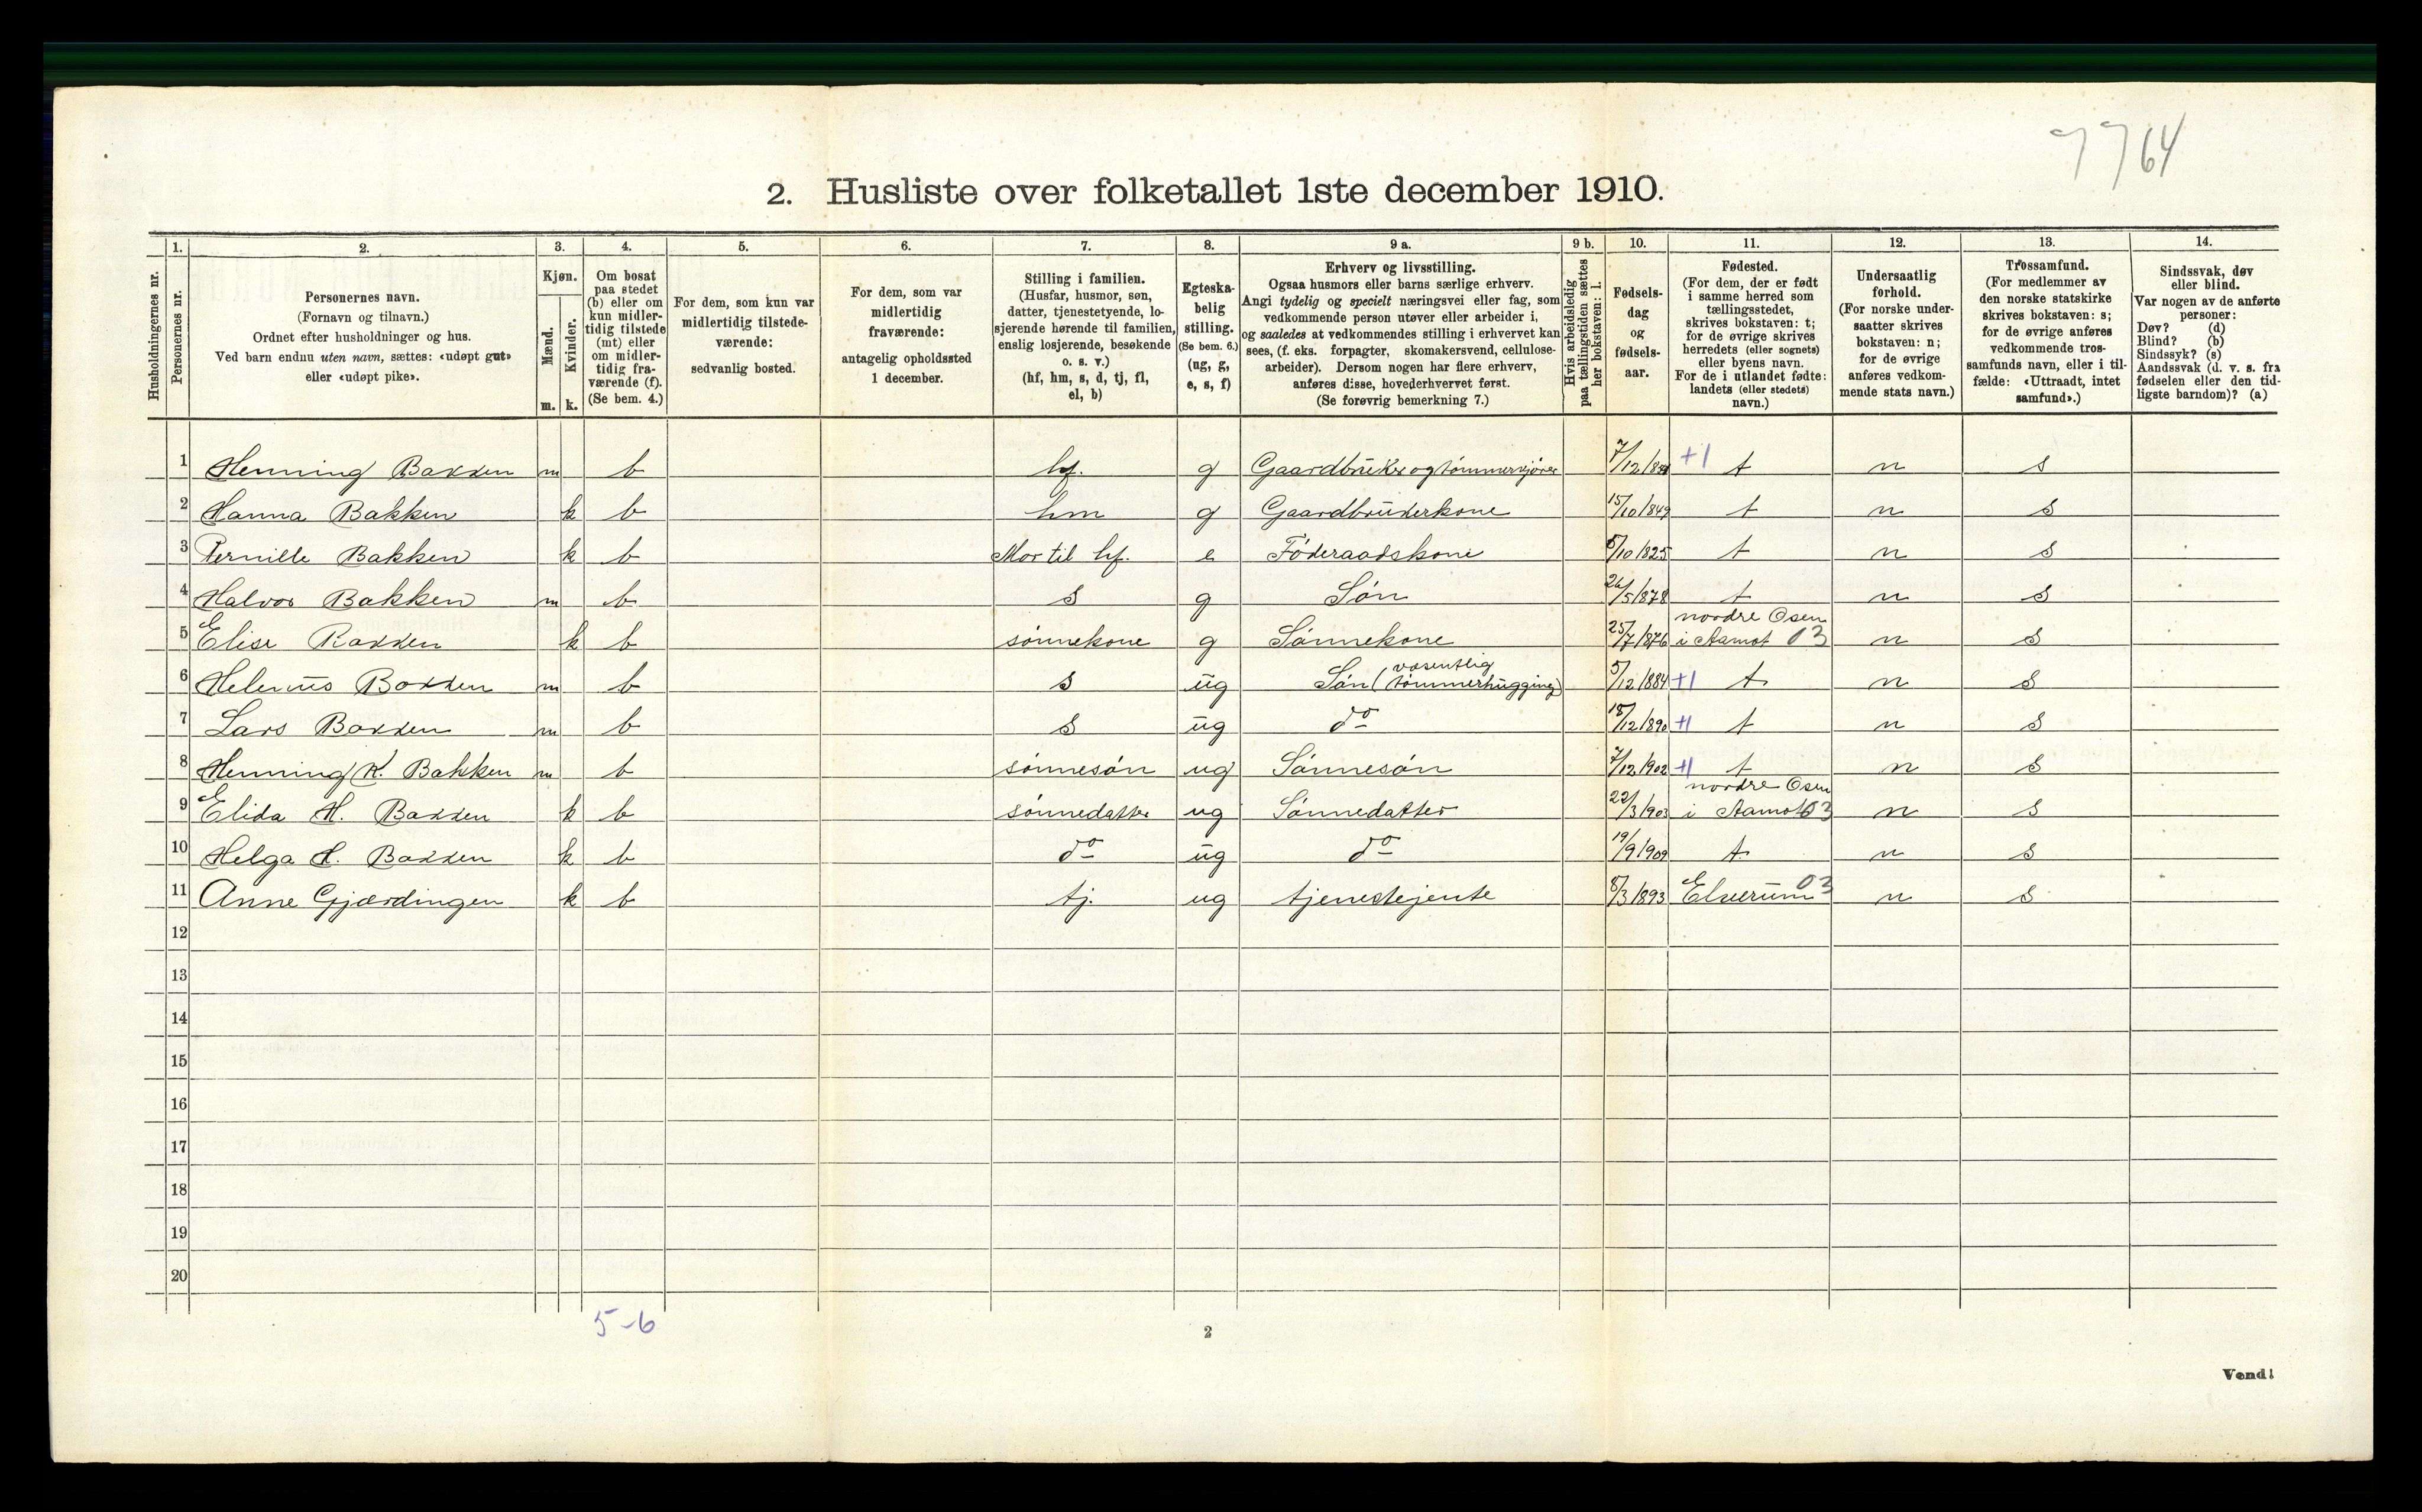 7764
2. Husliste over folketallet 1ste december 1910.
Husholdningernes nr.
1. Personernes nr.
2.
Personernes navn.
(Fornavn og tilnavn.)
Ordnet efter husholdninger og hus.
Ved barn endnu uten navn, sættes: «udøpt gut»
eller «udøpt pike».
3.
Kjøn.
Mænd.
m.
Kvinder.
k.
4.
Om bosat
paa stedet
(b) eller om
kun midler-
tidig tilstede
(mt) eller
om midler-
tidig fra-
værende (f).
(Se bem. 4.)
5.
For dem, som kun var
midlertidig tilstede-
værende:
sedvanlig bosted.
6.
For dem, som var
midlertidig
fraværende:
antagelig opholdssted
1 december.
7.
Stilling i familien.
(Husfar, husmor, søn,
datter, tjenestetyende, lo-
sjerende hørende til familien,
enslig losjerende, besøkende
o. s. v.)
(hf, hm, s, d, tj, fl,
el, b)
8.
Egteska-
belig
stilling.
(Se bem. 6.)
(ug, g,
e, s, f)
9 a.
Erhverv og livsstilling.
Ogsaa husmors eller barns særlige erhverv.
Angi tydelig og specielt næringsvei eller fag, som
vedkommende person utøver eller arbeider i,
og saaledes at vedkommendes stilling i erhvervet kan
sees, (f. eks. forpagter, skomakersvend, cellulose-
arbeider). Dersom nogen har flere erhverv,
anføres disse, hovederhvervet først.
(Se forøvrig bemerkning 7.)
9 b.
Hvis arbeidsledig
paa tællingstiden sættes
her bokstaven: l.
10.
Fødsels-
dag
og
fødsels-
aar.
11.
Fødested.
(For dem, der er født
i samme herred som
tællingsstedet,
skrives bokstaven: t;
for de øvrige skrives
herredets (eller sognets)
eller byens navn.
For de i utlandet fødte:
landets (eller stedets)
navn.)
12.
Undersaatlig
forhold.
(For norske under-
saatter skrives
bokstaven: n;
for de øvrige
anføres vedkom-
mende stats navn.)
13.
Trossamfund.
(For medlemmer av
den norske statskirke
skrives bokstaven: s;
for de øvrige anføres
vedkommende tros-
samfunds navn, eller i til-
fælde: «Uttraadt, intet
samfund».)
14.
Sindssvak, døv
eller blind.
Var nogen av de anførte
personer:
Døv? (d)
Blind? (b)
Sindssyk? (s)
Aandssvak (d. v. s. fra
fødselen eller den tid-
ligste barndom)? (a)
1 Henning Bakken m b hf. g Gaardbruker og tømmerkjører 7/12 +1 t n s
2 Hanna Bakken k b hm g Gaardbrukerkone 15/10 1849 t n s
3 Pernille Bakken k b Mor til hf. e Føderaadskone 8/10 1825 t n s
4 Halvor Bakken m b s g Søn 26/5 1878 t n s
5 Elise Bakken k b sønnekone g Sønnekone 25/7 1876 nordre Osen i Aamot 03 n s
6 Helenus Bakken m b s ug Søn (væsentlig tømmerhugging) 5/12 1884 +1 t n s
7 Lars Bakken m b s ug do 18/12 1890 +1 t n s
8 Henning K. Bakken m b sønnesøn ug Sønnesøn 7/12 1902 +1 t n s
9 Elida H. Bakken k b sønnedatter ug Sønnedatter 22/3 1903 nordre Osen i Aamot 03 n s
10 Helga H. Bakken k b do ug do 19/9 1909 t n s
11 Anne Gjærdingen k b tj. ug tjenestejente 8/3 1893 Elverum 03 n s
12
13
14
15
16
17
18
19
20
5-6
2
Vend!